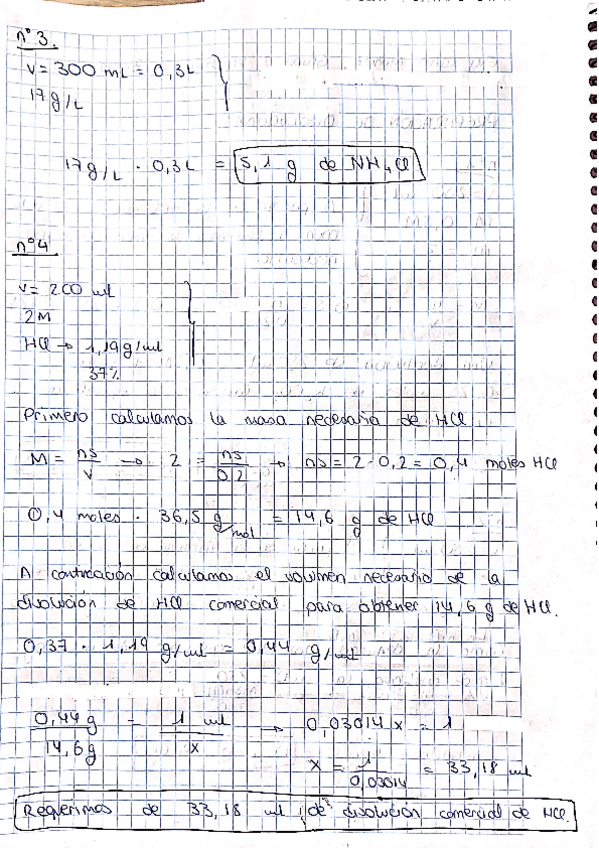 nº3.
V = 300 mL = 0,3L
17 g/L
17g/L · 0,3L = 5,1 g de NH4Cl
nº4
V = 200 ml
2M
HCl → 1,19g/ml
37%
Primero calculamos la masa necesaria de HCl
M = ns/V → 2 = ns/0,2 → ns = 2·0,2 = 0,4 moles HCl
0,4 moles · 36,5 g/mol = 14,6 g de HCl
A continuación calculamos el volumen necesario de la
disolución de HCl comercial para obtener 14,6 g de HCl.
0,37 · 1,19 g/ml = 0,44 g/ml
0,44g/14,6g = 1 ml/x → 0,03014x = 1
x = 1/0,03014 = 33,18 ml
Requerimos de 33,18 ml de disolución comercial de HCl.